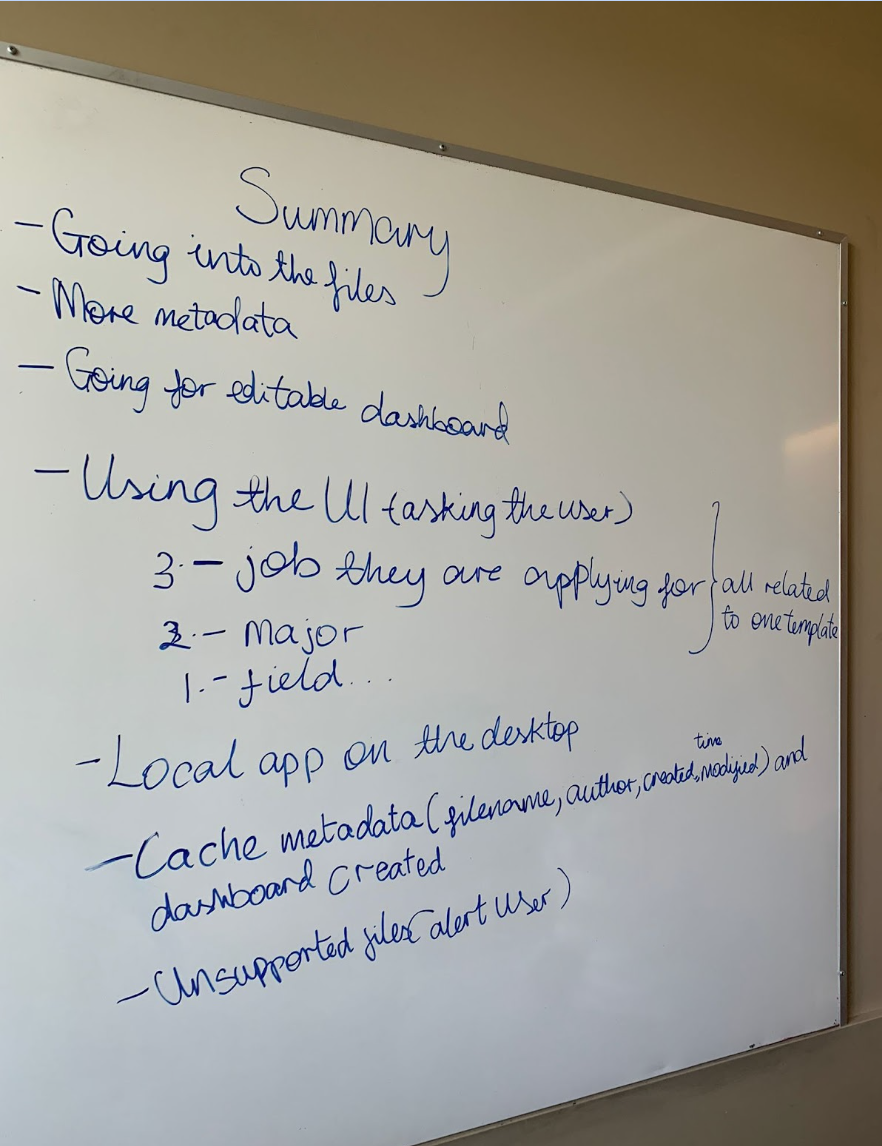 Summary
- Going into the files
- More metadata
- Going for editable dashboard
- Using the UI (asking the user)
3.- job they are applying for } all related
to one template
2.- Major
1.- field...
- Local app on the desktop
time
- Cache metadata (filename, author, created, modified) and
dashboard created
- Unsupported files (alert user)